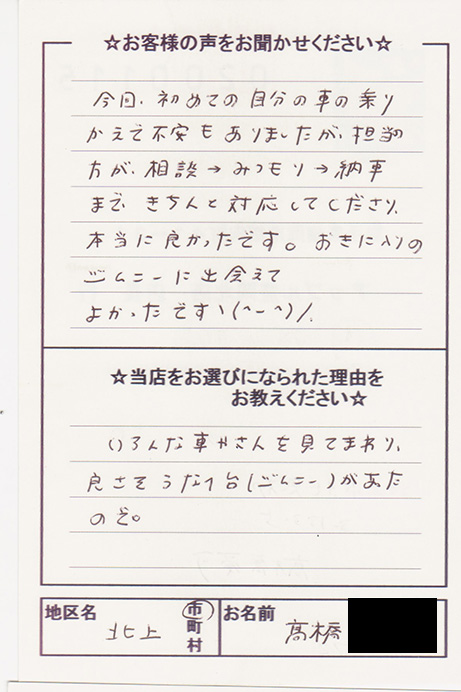 ☆お客様の声をお聞かせください☆
今回、初めての自分の車の乗り
かえで不安もありましたが、担当の
方が、相談→みつもり→納車
まで、きちんと対応してくださり、
本当に良かったです。おきに入りの
ジムニーに出会えて
よかったですヽ(^ー^)/.
☆当店をお選びになられた理由を
お教えください☆
いろんな車やさんを見てまわり、
良さそうな1台(ジムニー)があった
ので。
地区名
北上
市
町
村
お名前
高橋